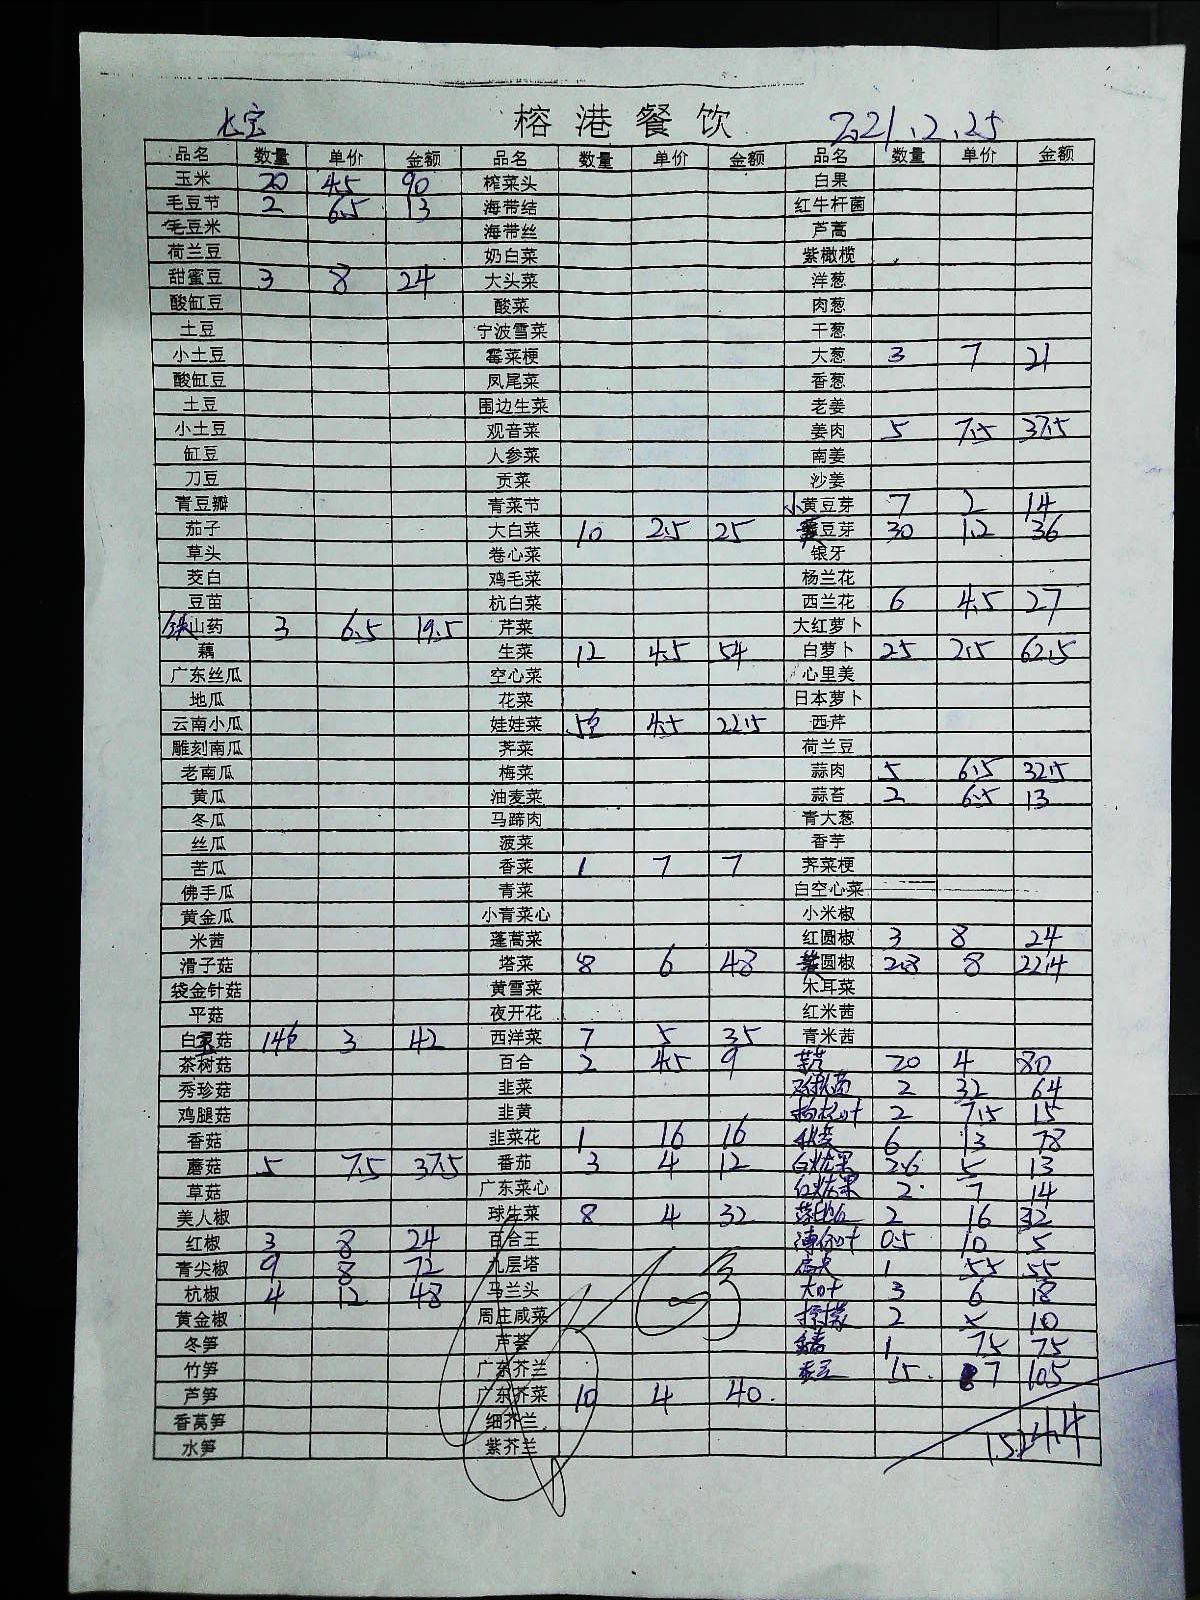 七宝 榕港餐饮 2021.2.25
品名 数量 单价 金额 品名 数量 单价 金额 品名 数量 单价 金额
玉米 20 4.5 90 榨菜头 白果
毛豆节 2 6.5 13 海带结 红牛杆菌
毛豆米 海带丝 芦蒿
荷兰豆 奶白菜 紫橄榄
甜蜜豆 3 8 24 大头菜 洋葱
酸缸豆 酸菜 肉葱
土豆 宁波雪菜 干葱
小土豆 霉菜梗 大葱 3 7 21
酸缸豆 凤尾菜 香葱
土豆 围边生菜 老姜
小土豆 观音菜 姜肉 5 7.5 37.5
缸豆 人参菜 南姜
刀豆 贡菜 沙姜
青豆瓣 青菜节 小黄豆芽 7 2 14
茄子 大白菜 10 2.5 25 豆芽 30 1.2 36
草头 卷心菜 银牙
茭白 鸡毛菜 杨兰花
豆苗 杭白菜 西兰花 6 4.5 27
铁山药 3 6.5 19.5 芹菜 大红萝卜
藕 生菜 12 4.5 54 白萝卜 25 2.5 62.5
广东丝瓜 空心菜 心里美
地瓜 花菜 日本萝卜
云南小瓜 娃娃菜 5 4.5 22.5 西芹
雕刻南瓜 荠菜 荷兰豆
老南瓜 梅菜 蒜肉 5 6.5 32.5
黄瓜 油麦菜 蒜苔 2 6.5 13
冬瓜 马蹄肉 青大葱
丝瓜 菠菜 香芋
苦瓜 香菜 1 7 7 荠菜梗
佛手瓜 青菜 白空心菜
黄金瓜 小青菜心 小米椒
米茜 蓬蒿菜 红圆椒 3 8 24
滑子菇 塔菜 8 6 48 圆椒 2.8 8 22.4
袋金针菇 黄雪菜 木耳菜
平菇 夜开花 红米茜
白玉菇 14 3 42 西洋菜 7 5 35 青米茜
茶树菇 百合 2 4.5 9 20 4 80
秀珍菇 韭菜 2 32 64
鸡腿菇 韭黄 枸杞叶 2 7.5 15
香菇 韭菜花 1 16 16 6 13 78
蘑菇 5 7.5 37.5 番茄 3 4 12 2.6 5 13
草菇 广东菜心 2 7 14
美人椒 球生菜 8 4 32 2 16 32
红椒 3 8 24 百合王 薄荷叶 0.5 10 5
青尖椒 9 8 72 九层塔 1 55 55
杭椒 4 12 48 马兰头 大叶 3 6 18
黄金椒 周庄咸菜 柠檬 2 5 10
冬笋 芦荟 1 75 75
竹笋 广东芥兰 15 7 105
芦笋 广东芥菜 10 4 40
香莴笋 细芥兰
水笋 紫芥兰 1524.4